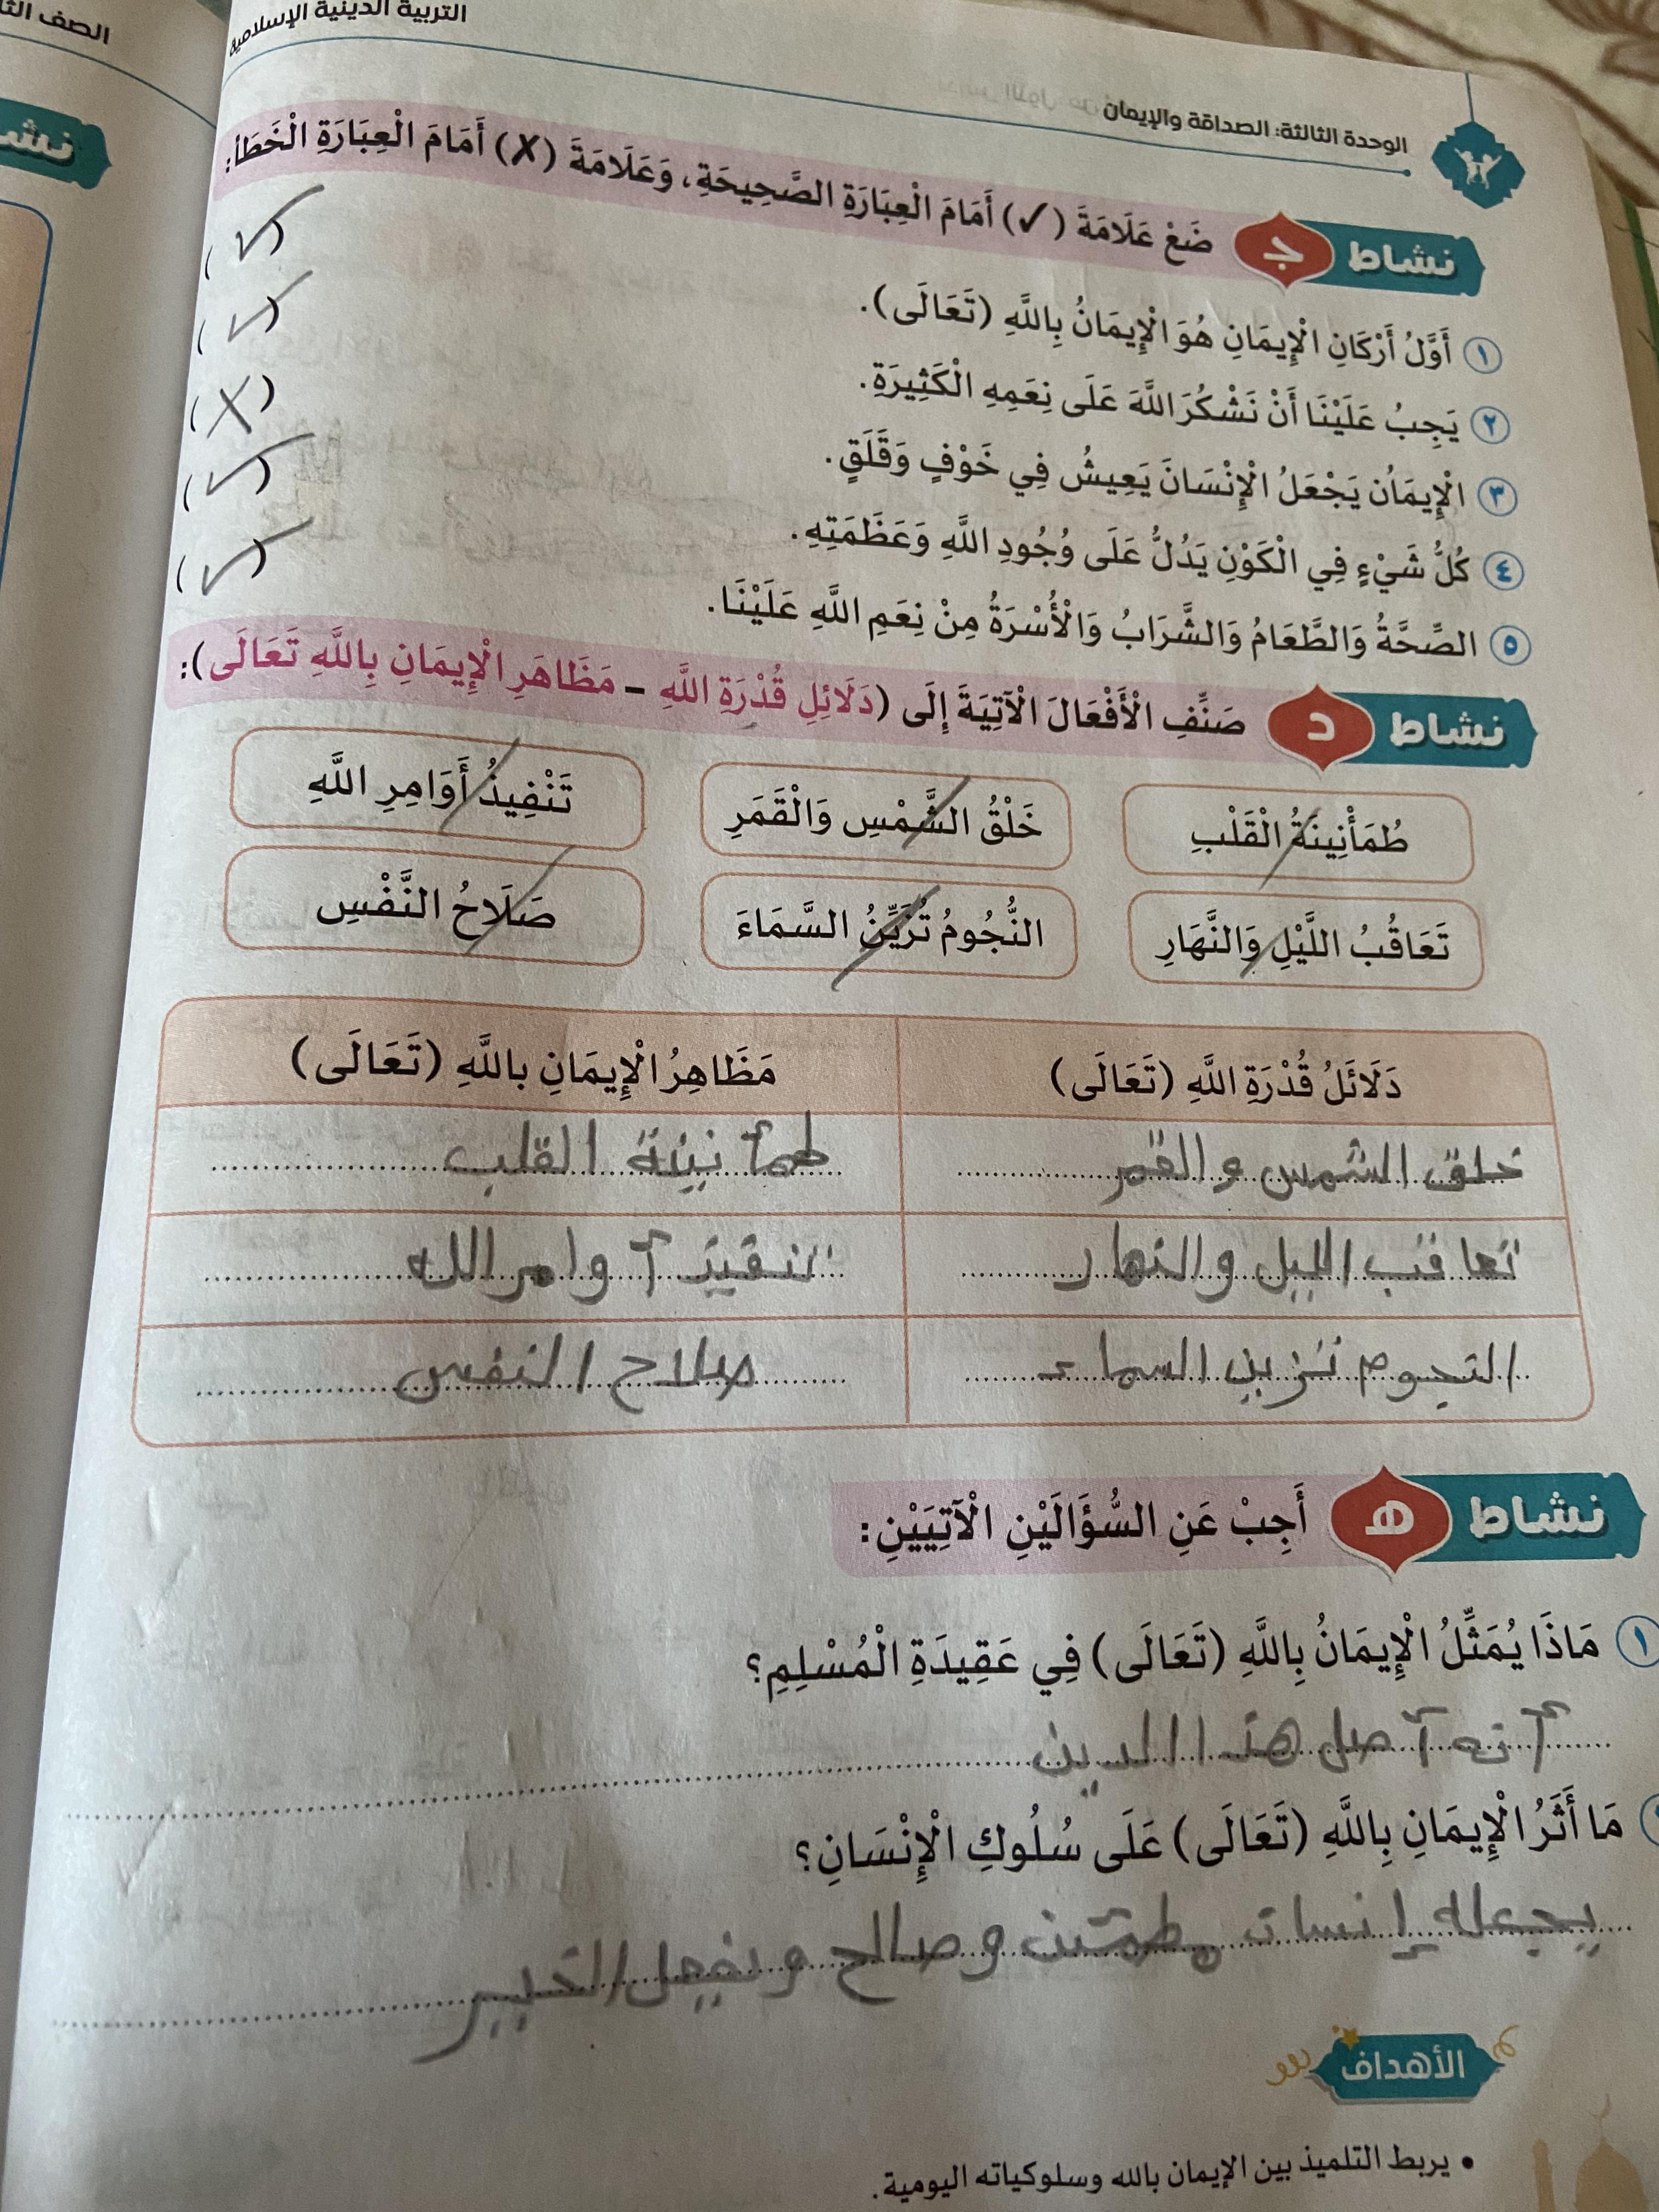 التربية الدينية الإسلامية
الوحدة الثالثة: الصداقة والإيمان
نشاط ج ضَعْ عَلَامَةَ (✓) أَمَامَ الْعِبَارَةِ الصَّحِيحَةِ، وَعَلَامَةَ (X) أَمَامَ الْعِبَارَةِ الْخَطَأ:
١ أَوَّلُ أَرْكَانِ الْإِيمَانِ هُوَ الْإِيمَانُ بِاللَّهِ (تَعَالَى). (✓)
٢ يَجِبُ عَلَيْنَا أَنْ نَشْكُرَ اللَّهَ عَلَى نِعَمِهِ الْكَثِيرَةِ. (✓)
٣ الْإِيمَاُن يَجْعَلُ الْإِنْسَانَ يَعِيشُ فِي خَوْفٍ وَقَلَقٍ. (X)
٤ كُلُّ شَيْءٍ فِي الْكَوْنِ يَدُلُّ عَلَى وُجُودِ اللَّهِ وَعَظَمَتِهِ. (✓)
٥ الصِّحَّةُ وَالطَّعَامُ وَالشَّرَابُ وَالْأُسْرَةُ مِنْ نِعَمِ اللَّهِ عَلَيْنَا. (✓)
نشاط د صَنِّفِ الْأَفْعَالَ الْآتِيَةَ إِلَى (دَلَائِلِ قُدْرَةِ اللَّهِ – مَظَاهَرِ الْإِيمَانِ بِاللَّهِ تَعَالَى):
طُمَأْنِينَةُ الْقَلْبِ خَلْقُ الشَّمْسِ وَالْقَمَرِ تَنْفِيذُ أَوَامِرِ اللَّهِ
تَعَاقُبُ اللَّيْلِ وَالنَّهَارِ النُّجُومُ تُزَيِّنُ السَّمَاءَ صَلَاحُ النَّفْسِ
دَلَائَلُ قُدْرَةِ اللَّهِ (تَعَالَى) مَظَاهِرُ الْإِيمَانِ باللَّهِ (تَعَالَى)
خلق الشمس و القمر طمأ نينة القلب
تعا قب الليل والنها ر تنفيذ أ وا مر الله
النجوم تزين السماء صلاح النفس
نشاط هـ أَجِبْ عَنِ السُّؤَالَيْنِ الْآتِيَيْنِ:
١ مَاذَا يُمَثِّلُ الْإِيمَانُ بِاللَّهِ (تَعَالَى) فِي عَقِيدَةِ الْمُسْلِمِ؟
أ نه أ صل هذ ا الدين
مَا أَثَرُ الْإِيمَانِ بِاللَّهِ (تَعَالَى) عَلَى سُلُوكِ الْإِنْسَانِ؟
يجعله إنسان مطمئن و صالح و يفعل الخير
الأهداف
• يربط التلميذ بين الإيمان بالله وسلوكياته اليومية.